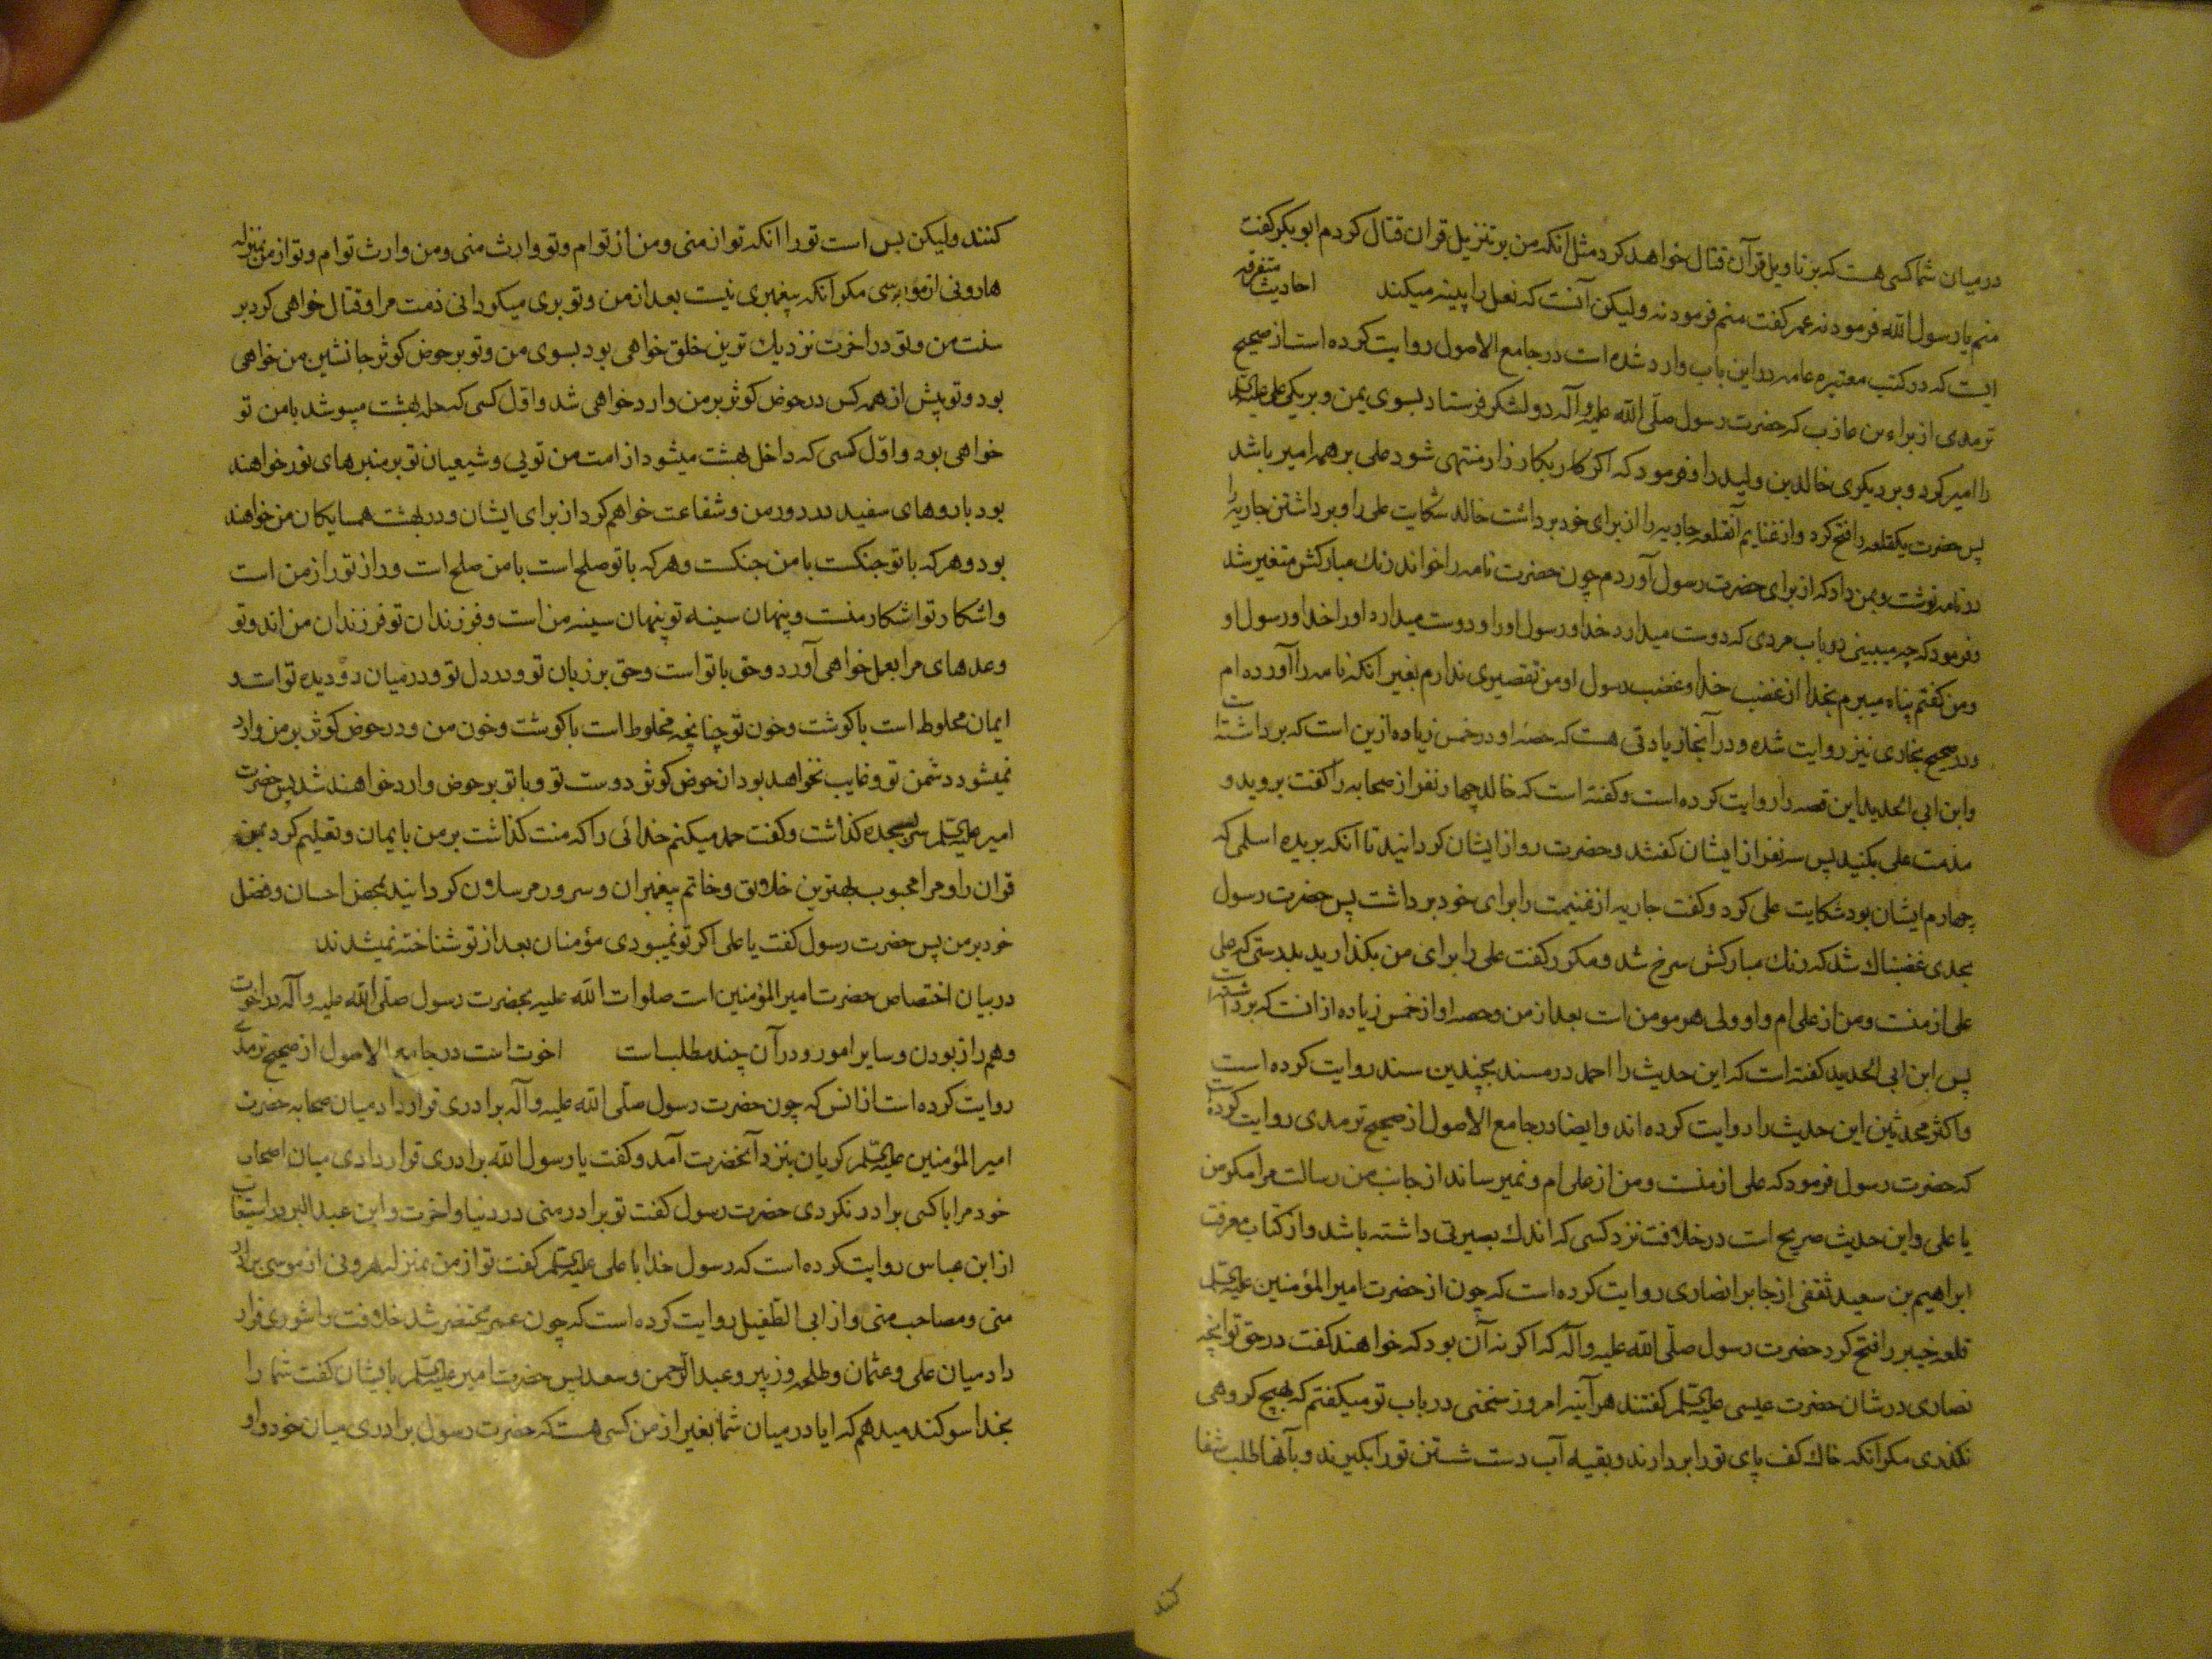 در میان شما کسی هست که بر تاویل قرآن قتال خواهد کرد مثل آنکه من بر تنزیل قران قتال کردم ابو بکر کفت
منم یا رسول الله فرمود نه عمر کفت منم فرمود نه ولیکن آنست که نعل را پینه میکند احادیث متفرقه
ایست که در کتب معتبره عامه در این باب وارد شده است در جامع الاصول روایت کرده است از صحیح
ترمدی از براء بن عازب که حضرت رسول صلّی الله علیه وآله دو لشکر فرستاد بسوی یمن و بر یکی علی علیه السلم
را امیر کرد و بر دیکری خالد بن ولید را و فرمود که اکر کار بکارزار منتهی شود علی بر همه امیر باشد
پس حضرت یکقلعه را فتح کرد و از غنایم آنقلعه جاریه را از برای خود برداشت خالد شکایت علی را و برداشتن جاریه را
در نامه نوشت و بمن داد که از برای حضرت رسول آوردم چون حضرت نامه را خواند رنك مبارکش متغیر شد
و فرمود که چه میبینی در باب مردی که دوست میدارد خدا و رسول او را و دوست میدارد او را خدا و رسول او
و من کفتم پناه میبرم بخدا از غضب خدا و غضب رسول او من تقصیری ندارم بغیر آنکه نامه را آورده ام
و در صحیح بخاری نیز روایت شده و در آنجا زیادتی هست که حصه او در خمس زیاده ازین است که برداشته است
و ابن ابی الحدید این قصه را روایت کرده است و کفته است که خالد چهار نفر از صحابه را کفت بروید و
مذمت علی بکنید پس سه نفر از ایشان کفتند و حضرت رو از ایشان کردانید تا آنکه بریده اسلمی که
چهارم ایشان بود شکایت علی کرد و کفت جاریه از غنیمت را برای خود برداشت پس حضرت رسول
بحدی غضبناك شد که رنك مبارکش سرخ شد و مکرر کفت علی را برای من بکذارید بدرستی که علی
علی از منست و من از علی ام و او ولی هر مومن است بعد از من و حصه او از خمس زیاده از انست که برداشته
پس ابن ابی الحدید کفته است که این حدیث را احمد در مسند بچندین سند روایت کرده است
و اکثر محدثین این حدیث را روایت کرده اند و ایضا در جامع الاصول از صحیح ترمدی روایت کرده است
که حضرت رسول فرمود که علی از منست و من از علی ام و نمیرساند از جانب من رسالت مرا مکر من
یا علی و این حدیث صریح است در خلافت نزد کسی که اندك بصیرتی داشته باشد و از کتاب معرفت
ابراهیم بن سعید ثقفی از جابر انصاری روایت کرده است که چون از حضرت امیر المؤمنین علیه السلم
قلعه خیبر را فتح کرد حضرت رسول صلّی الله علیه وآله که اکر نه آن بود که خواهند کفت در حق تو آنچه
نصاری در شان حضرت عیسی علیه السلم کفتند هرآینه امروز سخنی در باب تو میکفتم که بهیچ کروهی
نکذری مکر آنکه خاك کف پای تو را بردارند و بقیه آب دست شستن تو را بکیرند و بآنها طلب شفا
کنند
کنند ولیکن بس است تو را انکه تو از منی و من از تو ام و تو وارث منی و من وارث تو ام و تو از من بمنزله
هارونی از موسی مکر آنکه پیغمبری نیست بعد از من و تو بری میکردانی ذمت مرا و قتال خواهی کرد بر
سنت من و تو در اخرت نزدیك ترین خلق خواهی بود بسوی من و تو بر حوض کوثر جانشین من خواهی
بود و تو پیش از همه کس در حوض کوثر بر من وارد خواهی شد و اوّل کسی که حله بهشت میپوشد با من تو
خواهی بود و اوّل کسی که داخل بهشت میشود از امت من تویی و شیعیان تو بر منبرهای نور خواهند
بود با روهای سفید در دور من و شفاعت خواهم کرد از برای ایشان و در بهشت همسایکان من خواهند
بود و هر که با تو جنکست با من جنکست و هر که با تو صلح است با من صلح است و راز تو راز من است
و اشکار تو اشکار منست و پنهان سینه تو پنهان سینه من است و فرزندان تو فرزندان من اند و تو
وعدهای مرا بعمل خواهی آورد و حق با تو است و حق بر زبان تو و در دل تو و در میان دو دیده تو است و
ایمان مخلوط است با کوشت و خون تو چنانچه مخلوط است با کوشت و خون من و در حوض کوثر بر من وارد
نمیشود دشمن تو و غایب نخواهد بود از حوض کوثر دوست تو و با تو بر حوض وارد خواهند شد پس حضرت
امیر علیه السلم سر بسجده کذاشت و کفت حمد میکنم خدائی را که منت کذاشت بر من بایمان و تعلیم کرد بمن
قران را و مرا محبوب بهترین خلایق و خاتم پیغمبران و سرور مرسلان کردانید بمحض احسان و فضل
خود بر من پس حضرت رسول کفت یا علی اکر تو نمیبودی مؤمنان بعد از تو شناخته نمیشدند
در بیان اختصاص حضرت امیر المؤمنین است صلوات الله علیه بحضرت رسول صلّی الله علیه وآله در اخوت
و همراز بودن و سایر امور و در آن چند مطلب است اخوت است در جامع الاصول از صحیح ترمدی
روایت کرده است از انس که چون حضرت رسول صلّی الله علیه وآله برادری قرار داد میان صحابه حضرت
امیر المؤمنین علیه السلم کریان بنزد آنحضرت آمد و کفت یا رسول الله برادری قرار دادی میان اصحاب
خود مرا با کسی برادر نکردی حضرت رسول کفت تو برادر منی در دنیا و اخرت و ابن عبد البر در استیعاب
از ابن عباس روایت کرده است که رسول خدا با علی علیه السلم کفت تو از من بمنزله هرونی از موسی برادر
منی و مصاحب منی و از ابی الطّفیل روایت کرده است که چون عمر محتضر شد خلافت را شوری قرار
داد میان علی و عثمان و طلحه و زبیر و عبد الرّحمن و سعد پس حضرت امیر علیه السلم بایشان کفت شما را
بخدا سوکند میدهم که ایا در میان شما بغیر از من کسی هست که حضرت رسول برادری میان خود و او